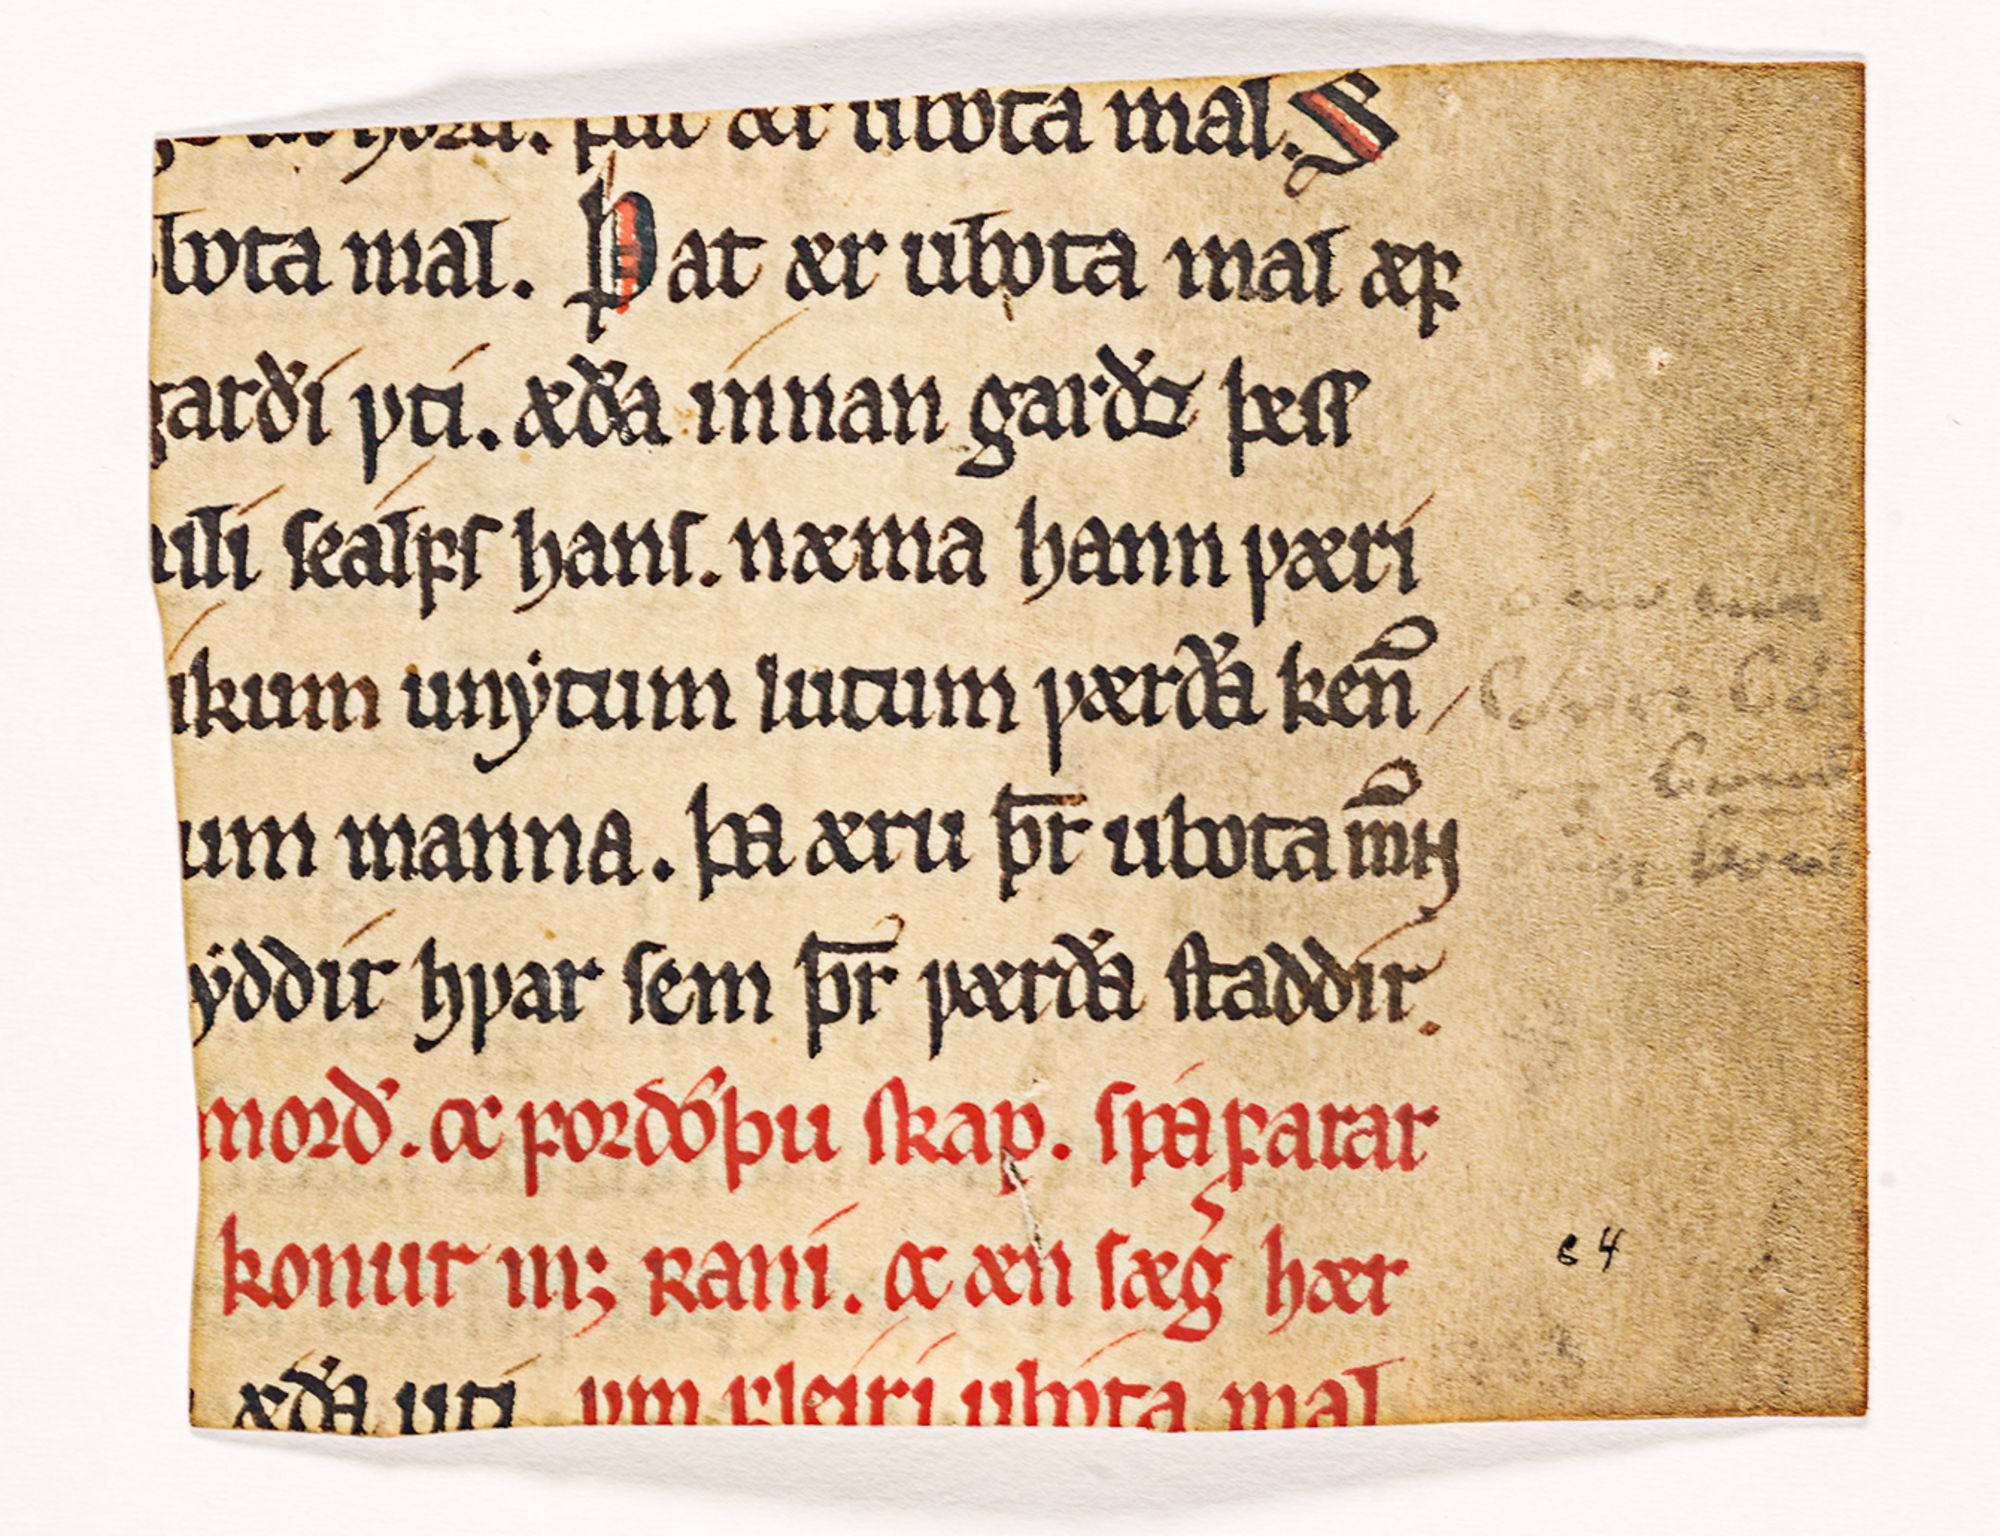 ær ubota mal. S
bota mal. Þat ær ubota mal æꝼ
garði ꝩti. æða innan garðz þeſſ
uili ſealꝼſ hanſ. næma hann ꝩæri
ikum unẏtum lutum ꝩærða ken̄
um manna. þa æru þr̄ ubota m̄n
ẏddir hꝩar ſem þr̄ ꝩærða ſtaddir.
morð. oc ꝼordoþu ſkap. ſpaꝼarar
konur iii; Rani. oc æn ſæg hær
æða uti ꝩm ꝼleiri ubota mal
64